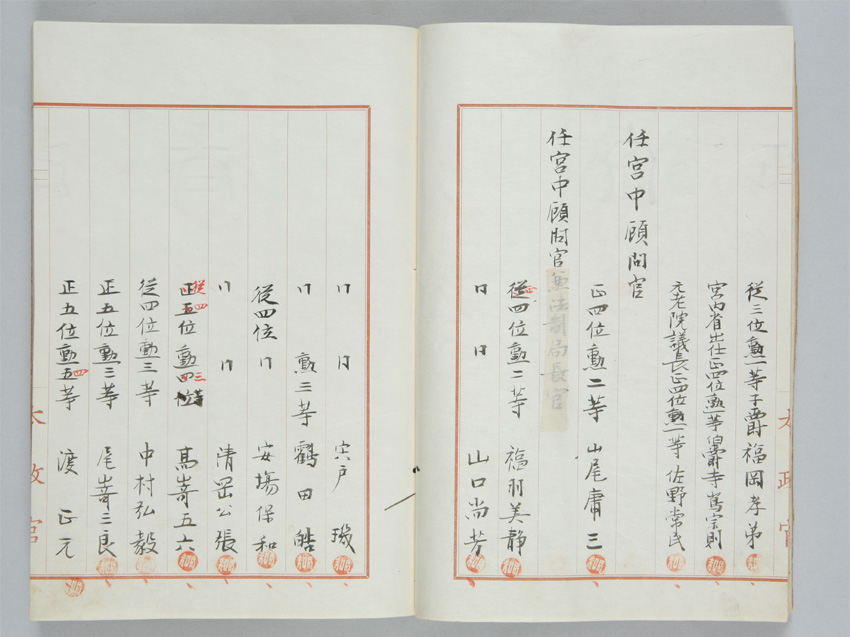 従三位勲一等子爵福岡孝弟
宮内省出仕正四位勲一等伯爵寺嶌宗則
元老院議長正四位勲一等佐野常民
任宮中顧問官
正四位勲二等 山尾庸三
任宮中顧問官兼法制局長官
従四位勲二等 福羽美静
正
同 同 山口尚芳
太政官
同 同 宍戸璣
同 勲三等 鶴田皓
従四位 同 安場保和
同 同 清岡公張
正五位勲四等 高崎五六
従四
三
従四位勲三等 中村弘毅
正五位勲三等 尾崎三良
正五位勲五等 渡正元
四
太政官